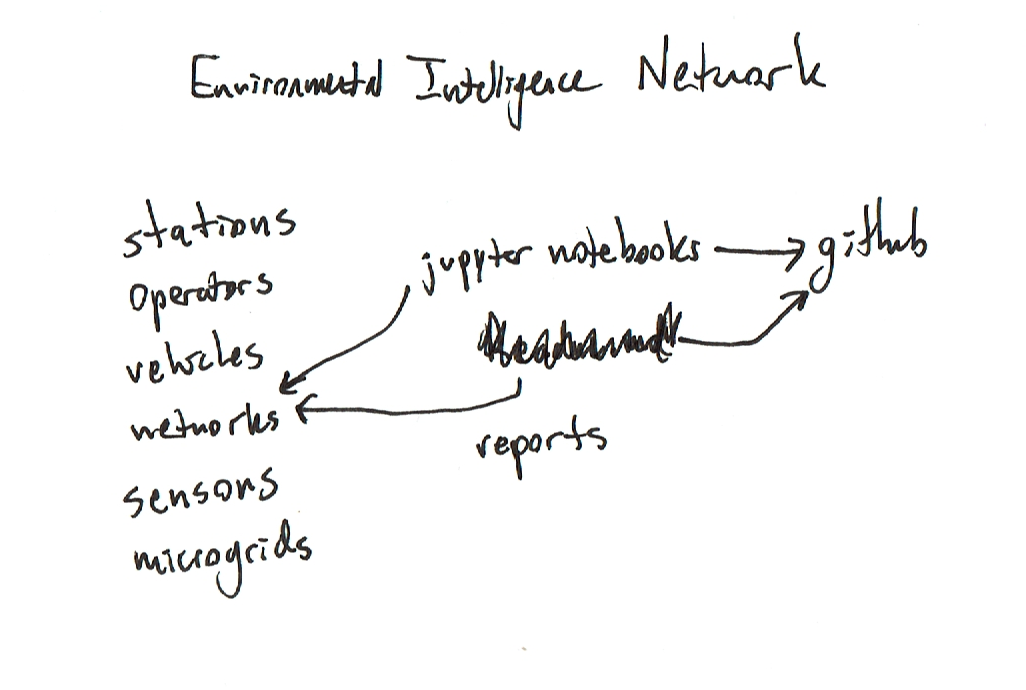 Environmental Intelligence Network
stations
operators
vehicles
networks
sensors
microgrids
jupyter notebooks
github
reports